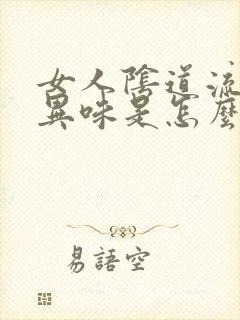 女人陰道流
異味是怎麼
易語空